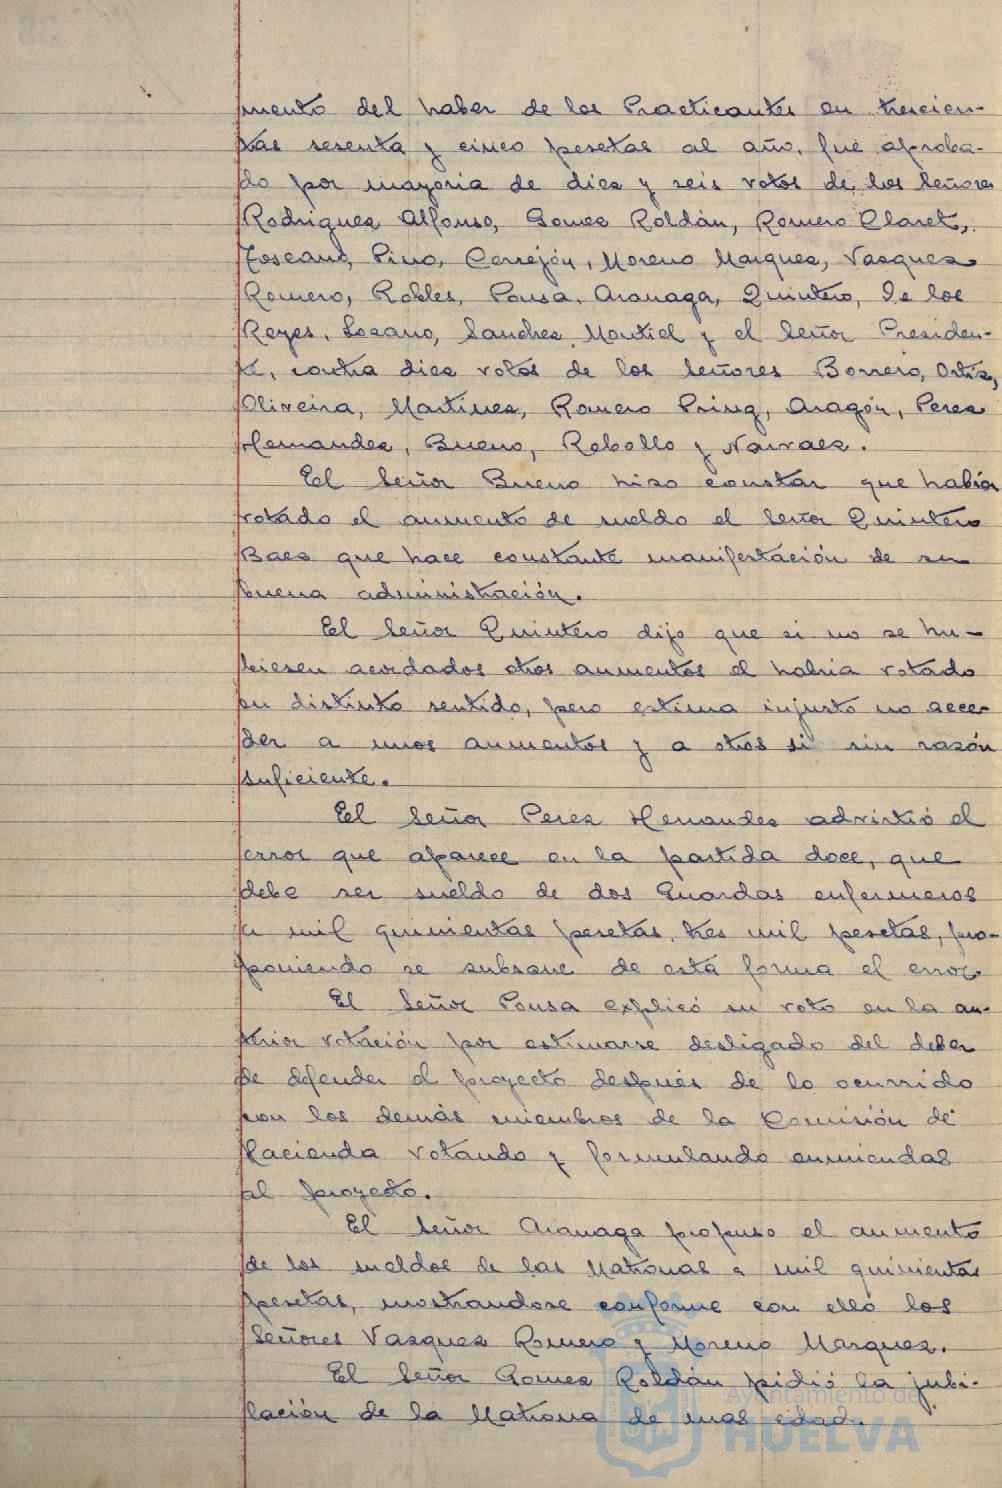 mento del haber de los Practicantes en trescien-
tas sesenta y cinco pesetas al año, fué aproba-
do por mayoria de diez y seis votos de los Señores
Rodriguez Alfonso, Gomez Roldán, Romero Claret,
Toscano, Pino, Cerrejón, Moreno Marquez, Vazquez
Romero, Robles, Pousa, Aranaga, Quintero, De los
Reyes, Lozano, Sanchez Montiel y el Señor Presiden-
te, contra diez votos de los señores Borrero, Ortiz,
Oliveira, Martinez, Romero Prieng, Aragón, Perez
Hernandez, Bueno, Rebollo y Narvaez.
El Señor Bueno hizo constar que habia
votado el aumento de sueldo el Señor Quintero
Baez que hace constante manifestación de su
buena administración.
El Señor Quintero dijo que si no se hu-
biesen acordados otros aumentos el habria votado
en distinto sentido, pero estima injusto no acce-
der a unos aumentos y a otros si sin razón
suficiente.
El Señor Perez Hernandez advirtió el
error que aparece en la partida doce, que
debe ser sueldo de dos Guardas enfermeros
a mil quinientas pesetas, tres mil pesetas, pro-
poniendo se subsane de esta forma el error.
El Señor Pousa explicó su voto en la an-
terior votación por estimarse desligado del deber
de defender el proyecto después de lo ocurrido
con los demás miembros de la Comisión de
Hacienda votando y formulando enmiendas
al proyecto.
El Señor Aranaga propuso el aumento
de los sueldos de las Matronas a mil quinientas
pesetas, mostrandose conforme con ello los
Señores Vazquez Romero y Moreno Marquez.
El Señor Gomez Roldán pidió la jubi-
lación de la Matrona de mas edad.
Ayuntamiento de
HUELVA